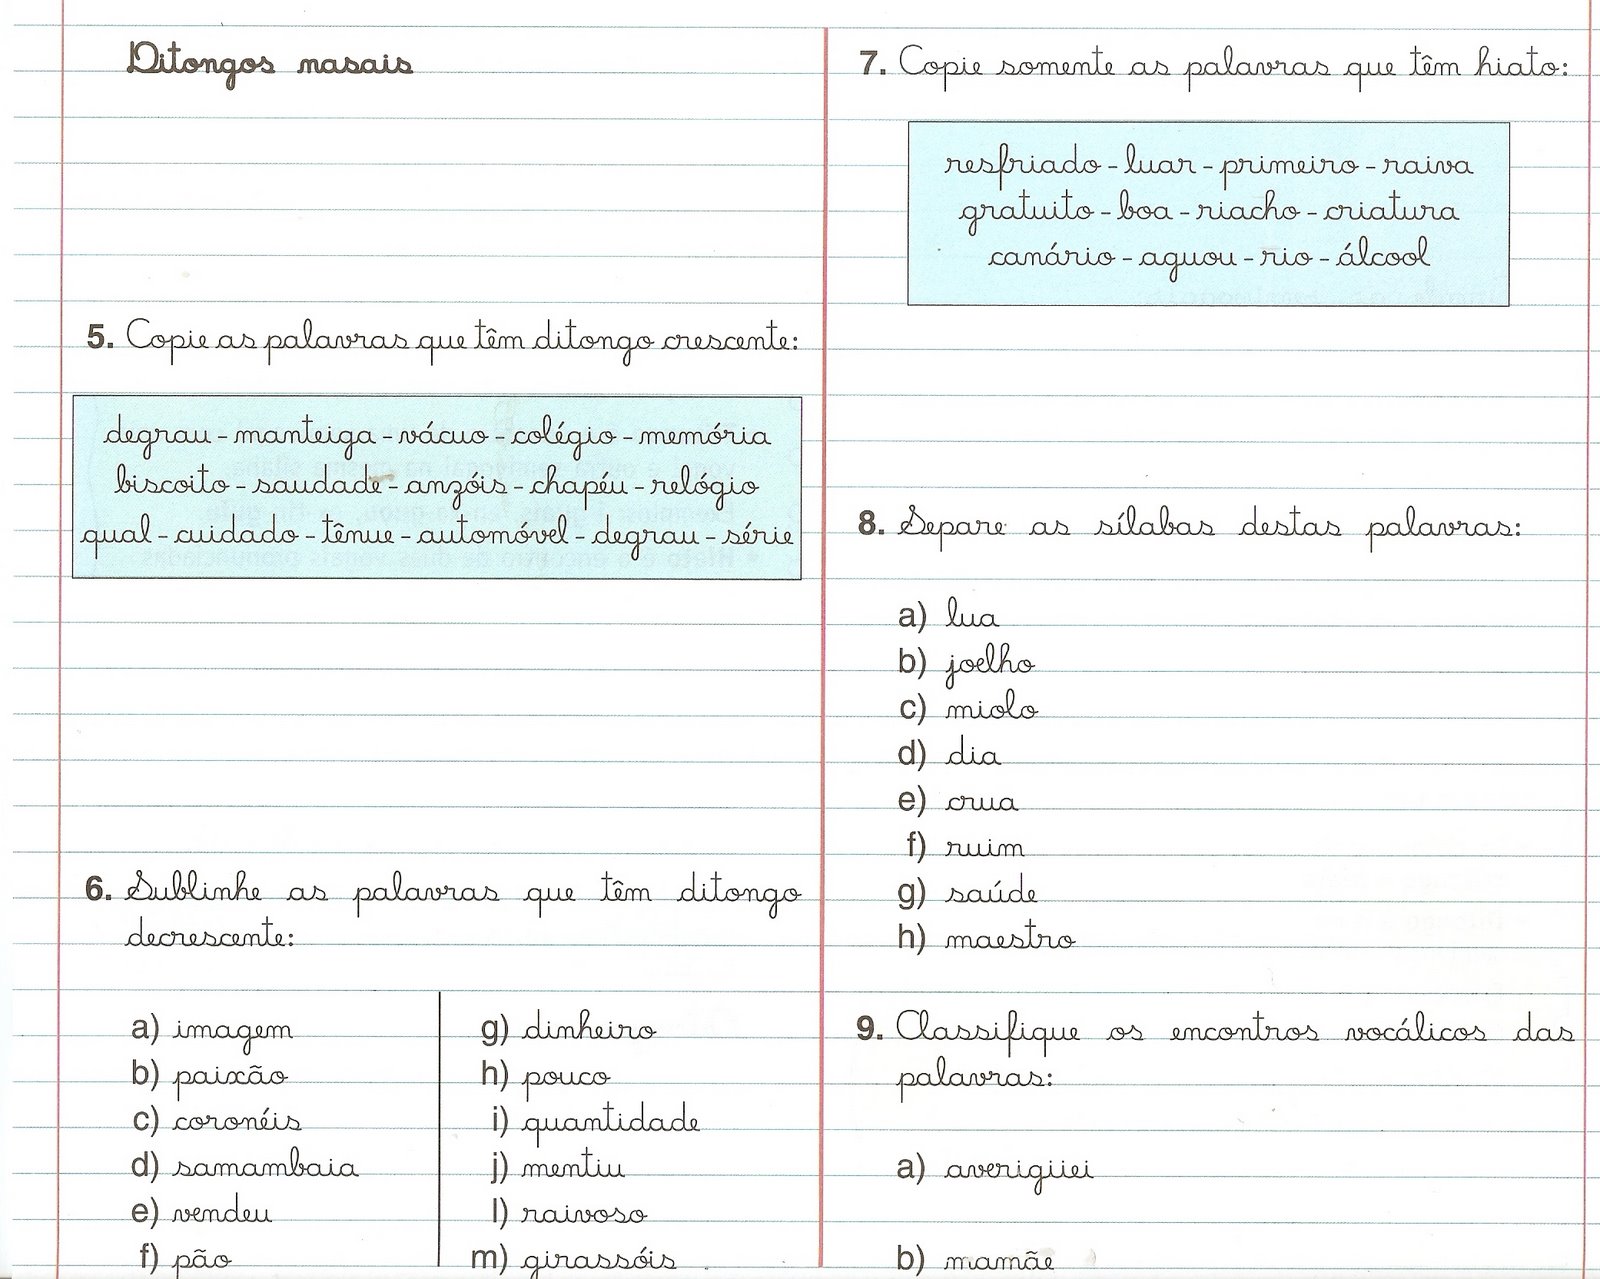 Ditongos nasais
5. Copie as palavras que têm ditongo crescente:
degrau - manteiga - vácuo - colégio - memória
biscoito - saudade - anzóis - chapéu - relógio
qual - cuidado - tênue - automóvel - degrau - série
6. Sublinhe as palavras que têm ditongo
decrescente:
a) imagem
b) paixão
c) coronéis
d) samambaia
e) vendeu
f) pão
g) dinheiro
h) pouco
i) quantidade
j) mentiu
l) raivoso
m) girassóis
7. Copie somente as palavras que têm hiato:
resfriado - luar - primeiro - raiva
gratuito - boa - riacho - criatura
canário - aguou - rio - álcool
8. Separe as sílabas destas palavras:
a) lua
b) joelho
c) miolo
d) dia
e) crua
f) ruim
g) saúde
h) maestro
9. Classifique os encontros vocálicos das
palavras:
a) averigüei
b) mamãe